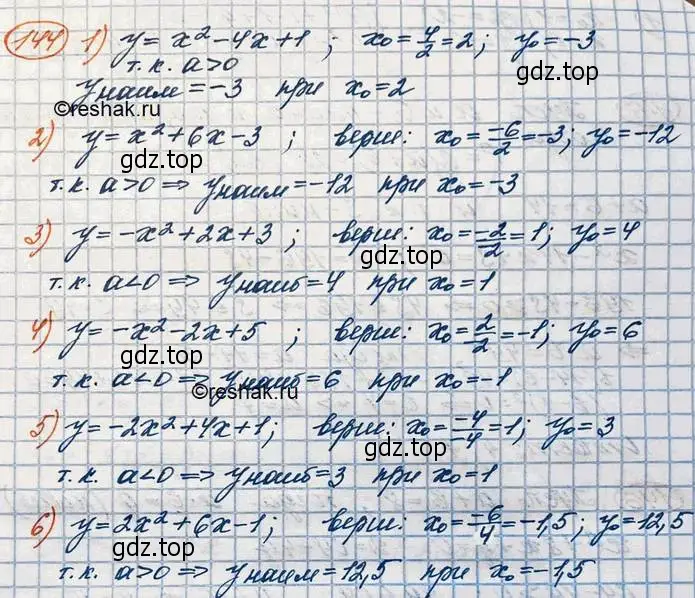 144 1) y = x² - 4x + 1 ; x₀ = 4/2 = 2; y₀ = -3
т.к. a > 0 gdz.top
yнаим = -3 при x₀ = 2
©reshak.ru
2) y = x² + 6x - 3 ; верш: x₀ = -6/2 = -3; y₀ = -12
gdz.top
т.к. a > 0 => yнаим = -12 при x₀ = -3
3) y = -x² + 2x + 3 ; верш: x₀ = -2/-2 = 1; y₀ = 4
gdz.top
т.к. a < 0 => yнаиб = 4 при x₀ = 1
4) y = -x² - 2x + 5 ; верш: x₀ = 2/-2 = -1; y₀ = 6
gdz.top
т.к. a < 0 => yнаиб = 6 при x₀ = -1
©reshak.ru
5) y = -2x² + 4x + 1; верш: x₀ = -4/-4 = 1; y₀ = 3
gdz.top
т.к. a < 0 => yнаиб = 3 при x₀ = 1
6) y = 2x² + 6x - 1; верш: x₀ = -6/4 = -1,5; y₀ = 12,5
gdz.top gdz.top
т.к. a > 0 => yнаим = 12,5 при x₀ = -1,5